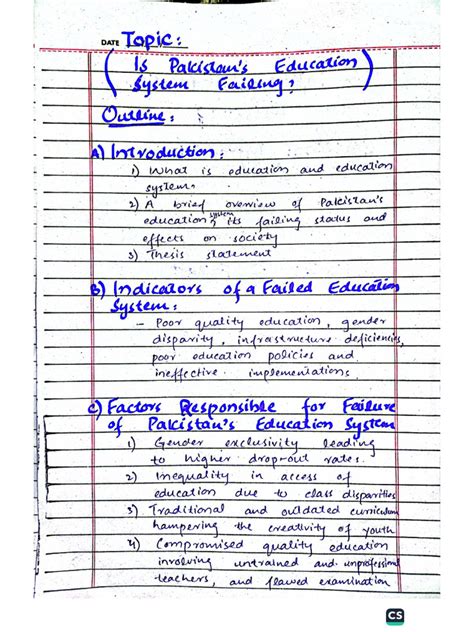 DATE Topic:
( Is Pakistan's Education
System Failing? )
Outline:
A) Introduction:
1) What is education and education
system.
2) A brief overview of Pakistan's
education system, its failing status and
effects on society
3) Thesis statement
B) Indicators of a Failed Education
System:
- Poor quality education, gender
disparity, infrastructure deficiencies,
poor education policies and
ineffective implementations
C) Factors Responsible for Failure
of Pakistan's Education System
1) Gender exclusivity leading
to higher drop-out rates.
2) Inequality in access of
education due to class disparities
3) Traditional and outdated curriculum
hampering the creativity of youth
4) Compromised quality education
involving untrained and unprofessional
teachers, and flawed examination
CS